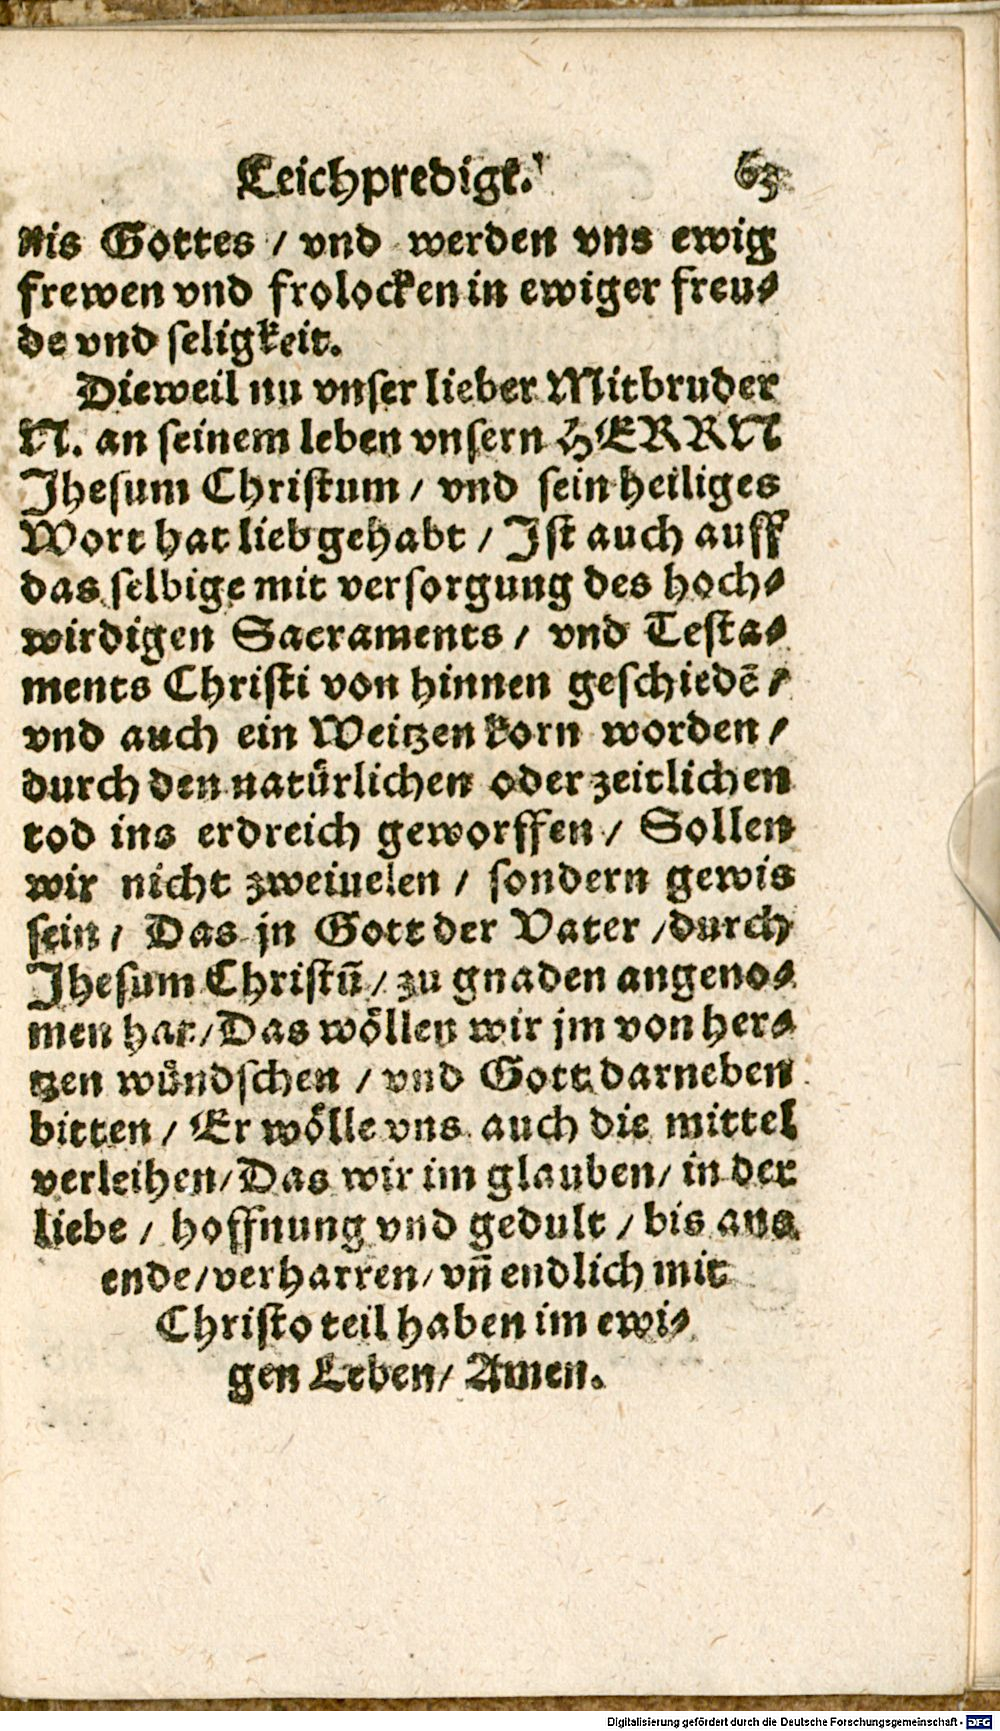 Leichpredigt. 63
nis Gottes / vnd werden vns ewig
frewen vnd frolocken in ewiger freu⸗
de vnd seligkeit.
Dieweil nu vnser lieber Mitbruder
N. an seinem leben vnsern HERRN
Jhesum Christum / vnd sein heiliges
Wort hat lieb gehabt / Jst auch auff
das selbige mit versorgung des hoch⸗
wirdigen Sacraments / vnd Testa⸗
ments Christi von hinnen geschiedē /
vnd auch ein Weitzen korn worden /
durch den natürlichen oder zeitlichen
tod ins erdreich geworffen / Sollen
wir nicht zweiuelen / sondern gewis
sein / Das jn Gott der Vater / durch
Jhesum Christū / zu gnaden angeno⸗
men hat / Das wöllen wir jm von her⸗
tzen wündschen / vnd Gott darneben
bitten / Er wölle vns auch die mittel
verleihen / Das wir im glauben / in der
liebe / hoffnung vnd gedult / bis ans
ende / verharren / vn̄ endlich mit
Christo teil haben im ewi⸗
gen Leben / Amen.
Digitalisierung gefördert durch die Deutsche Forschungsgemeinschaft - DFG